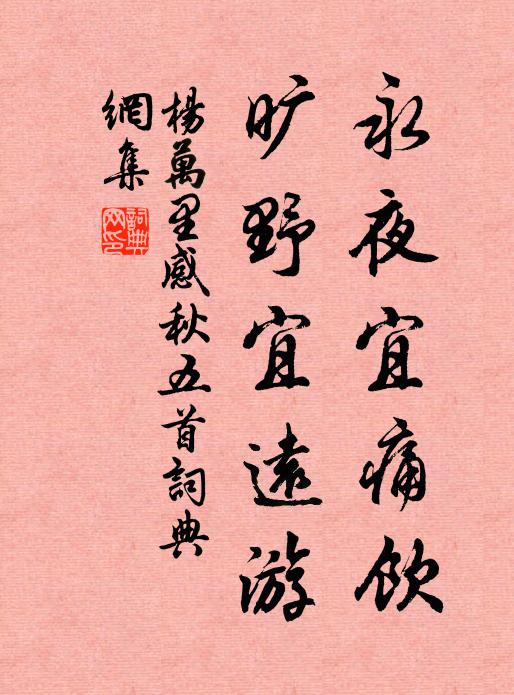 永夜宜痛飲
旷野宜遠游
楊萬里感秋五首詞典
網集
詞典網印